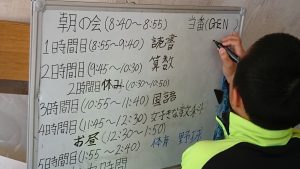 朝の会(8:40~8:55) 当番(GEN)
1時間目(8:55~9:40) 読書
2日時間目(9:45~10:30) 算数
2時間休み(10:30~10:50)
3時間目(10:55~11:40) 国語
4時間目(11:45~12:30)
お昼(12:30~1:50)
5時間目(1:55~2:40) 体育